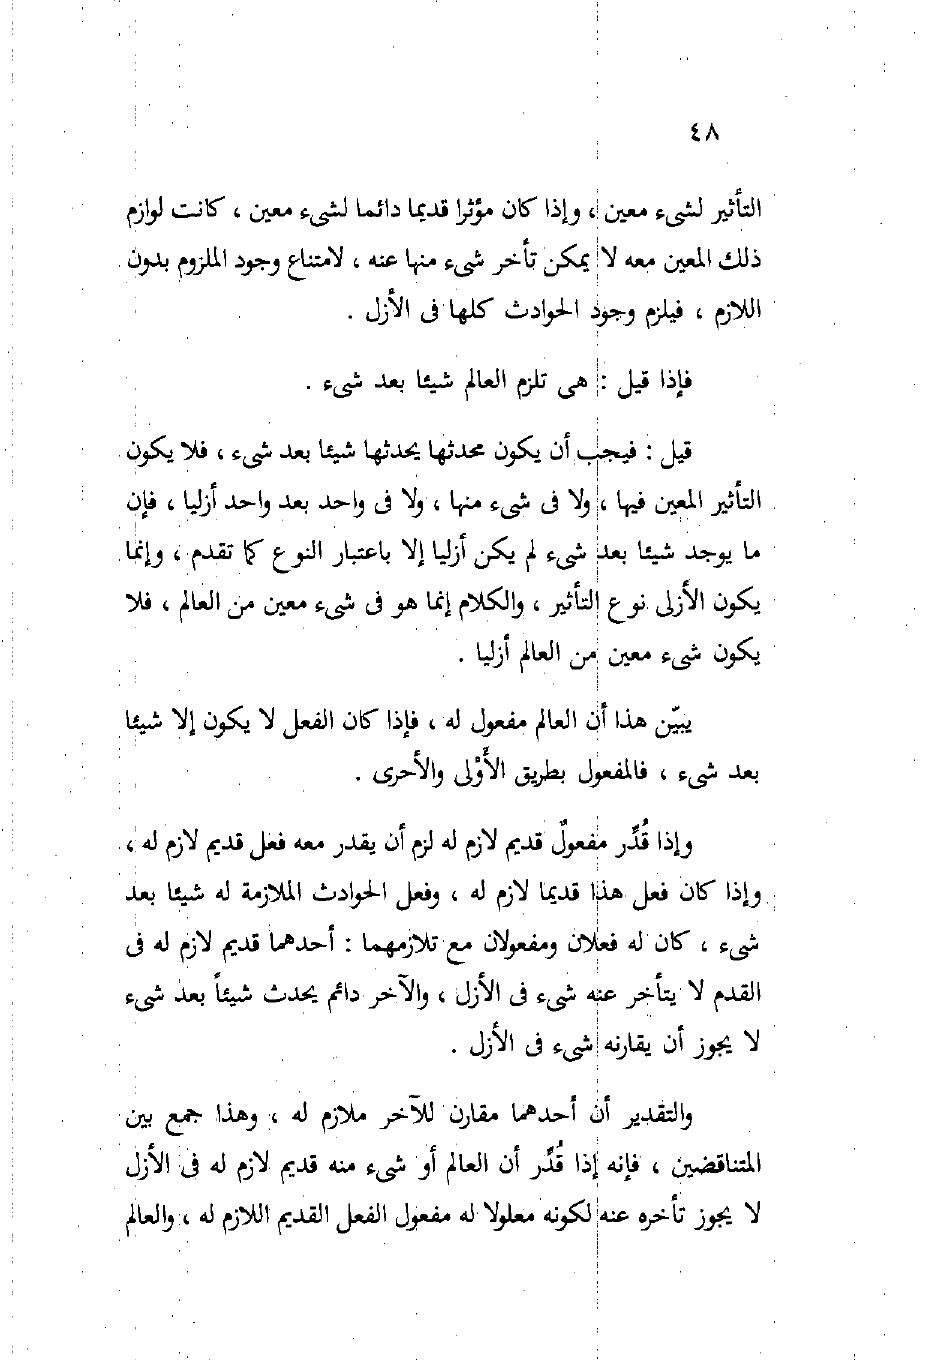 ٤٨
التأثير لشىء معين ، وإذا كان مؤثرا قديما دائما لشىء معين ، كانت لوازم
ذلك المعين معه لا يمكن تأخر شىء منها عنه ، لامتناع وجود الملزوم بدون
اللازم ، فيلزم وجود الحوادث كلها فى الأزل .
فإذا قيل : هى تلزم العالم شيئا بعد شىء .
قيل : فيجب أن يكون محدثها يحدثها شيئا بعد شىء ، فلا يكون
التأثير المعين فيها ، ولا فى شىء منها ، ولا فى واحد بعد واحد أزليا ، فإن
ما يوجد شيئا بعد شىء لم يكن أزليا إلا باعتبار النوع كما تقدم ، وإنما
يكون الأزلى نوع التأثير ، والكلام إنما هو فى شىء معين من العالم ، فلا
يكون شىء معين من العالم أزليا .
يبيّن هذا أن العالم مفعول له ، فإذا كان الفعل لا يكون إلا شيئا
بعد شىء ، فالمفعول بطريق الأَوْلى والأحرى .
وإذا قُدِّر مفعولٌ قديم لازم له لزم أن يقدر معه فعل قديم لازم له ،
وإذا كان فعل هذا قديما لازم له ، وفعل الحوادث الملازمة له شيئا بعد
شىء ، كان له فعلان ومفعولان مع تلازمهما : أحدهما قديم لازم له فى
القدم لا يتأخر عنه شىء فى الأزل ، والآخر دائم يحدث شيئاً بعد شىء
لا يجوز أن يقارنه شىء فى الأزل .
والتقدير أن أحدهما مقارن للآخر ملازم له ، وهذا جمع بين
المتناقضين ، فإنه إذا قُدِّر أن العالم أو شىء منه قديم لازم له فى الأزل
لا يجوز تأخره عنه لكونه معلولا له مفعول الفعل القديم اللازم له ، والعالم